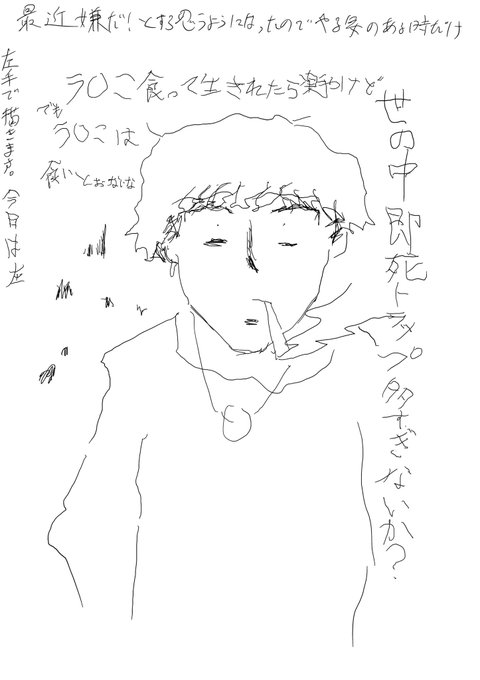 最近嫌だ!とする思うようになったのでやる気のある時だけ
左手で描きます。今日は左
ラ〇こ食って生きれたら楽やけど
でも
ラ〇こは
世の中即死トラップ多すぎないか?